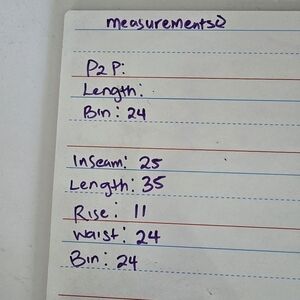 measurements:
P2P:
Length:
Bin: 24
Inseam: 25
Length: 35
Rise: 11
Waist: 24
Bin: 24